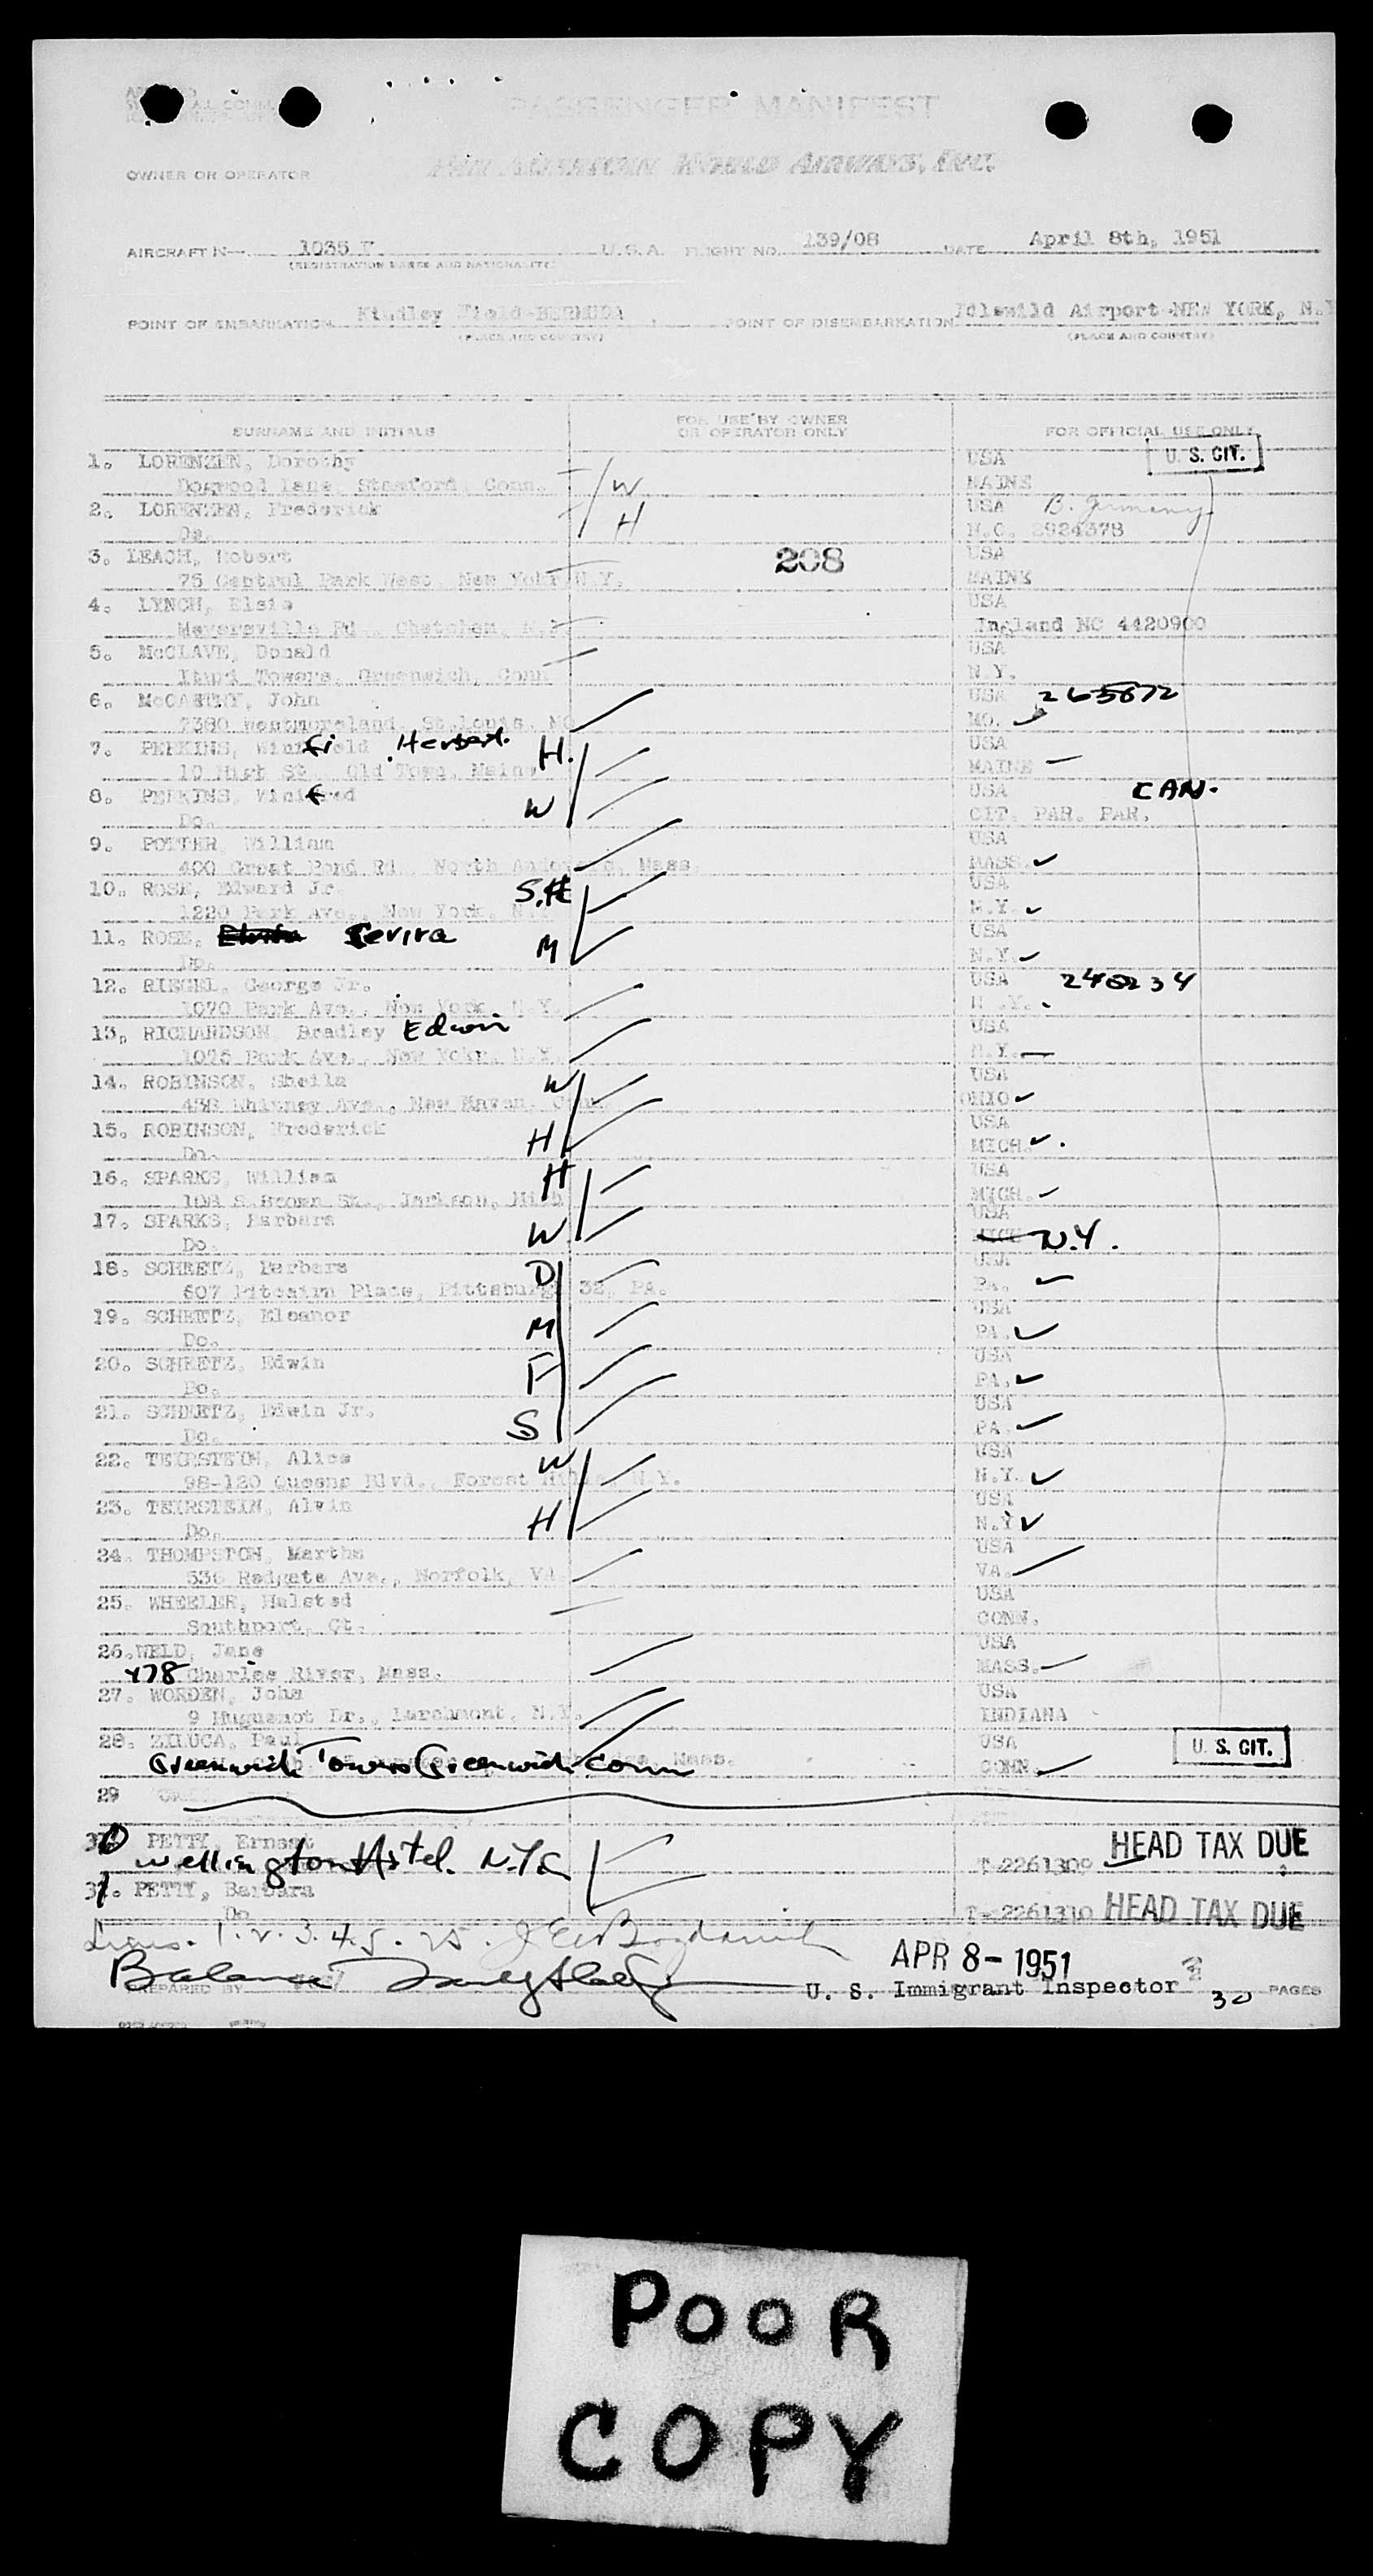 PASSENGER MANIFEST
OWNER OR OPERATOR PAN AMERICAN WORLD AIRWAYS, INC.
AIRCRAFT N 1035 V U.S.A. FLIGHT NO. 139/08 DATE April 8th, 1951
(REGISTRATION MARKS AND NATIONALITY)
POINT OF EMBARKATION Kindley Field-BERMUDA POINT OF DISEMBARKATION Idlewild Airport-NEW YORK, N.Y
(PLACE AND COUNTRY) (PLACE AND COUNTRY)
SURNAME AND INITIALS FOR USE BY OWNER OR OPERATOR ONLY FOR OFFICIAL USE ONLY
1. LORENZEN, Dorothy USA U. S. CIT.
Dogwood Lane, Stamford, Conn. W MAINE
2. LORENZEN, Frederick H USA B. Germany
Do. N.C. 2924378
3. LEACH, Robert 208 USA
75 Central Park West, New York N.Y. MAINE
4. LYNCH, Elsie USA
Meyersville Rd., N.J. England NC 4420900
5. McCLAVE, Donald USA
Towers, Greenwich, Conn N.Y.
6. McCARTHY, John USA 265872
7380 Westmoreland, St.Louis, MO MO.
7. PERKINS, fi Herbert. H. USA
10 St., Old Town, Maine MAINE
8. PERKINS, Winifred W USA CAN.
Do. CIT. PAR. PAR.
9. POTTER, William USA
400 Great Pond Rd., North Andovers, Mass. MASS.
10. ROSE, Edward Jr. S.H USA
1220 Park Ave., New York, N.Y. N.Y.
11. ROSE, Revira M USA
Do. N.Y.
12. RIEGEL, George Jr. USA 240234
1070 Park Ave., New York, N.Y. N.Y.
13. RICHARDSON Bradley Edwin USA
Park Ave., New York, N.Y. N.Y.
14. ROBINSON, Sheila W USA
Whitney Ave., New Haven, Conn. OHIO
15. ROBINSON, Frederick H USA
Do. MICH.
16. SPARKS, William H USA
108 S.Brown St., Jackson, Mich MICH.
17. SPARKS, Barbara W USA
Do. N.Y.
18. SCHEETZ, Barbara D USA
607 Pitcairn Place, Pittsburg 32, PA. PA.
19. SCHEETZ, Eleanor M USA
Do. PA.
20. SCHEETZ, Edwin F USA
Do. PA.
21. SCHEETZ, Edwin Jr. S USA
Do. PA.
22. TEIRSTEIN, Alice W USA
98-120 Queens Blvd., Forest Hills, N.Y. N.Y.
23. TEIRSTEIN, Alvin H USA
Do. N.Y
24. THOMPSTON, Martha USA
536 Redgate Ave., Norfolk, VA VA.
25. WHEELER, Halsted USA
Southport, Ct. CONN.
26. WELD, Jane USA
478 Charles River, Mass. MASS.
27. WORDEN, John USA
9 Huguenot Dr., Larchmont, N.Y. INDIANA
28. ZILUCA, Paul USA U. S. CIT.
Greenwich Towers Greenwich Conn Mass. CONN
29
30 PETTY, Ernest HEAD TAX DUE
Wellington Hotel. N.Y.C T-2261309
31. PETTY, Barbara
Do. T-2261310 HEAD TAX DUE
1. 2. 3. 4. 5. 25.
Balance APR 8-1951
PREPARED BY U. S. Immigrant Inspector 30 PAGES
POOR
COPY